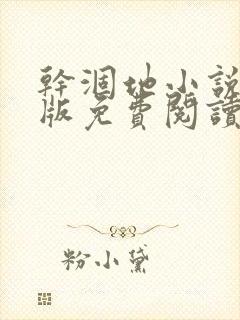 幹涸地小説
版免費閱讀
粉小黛